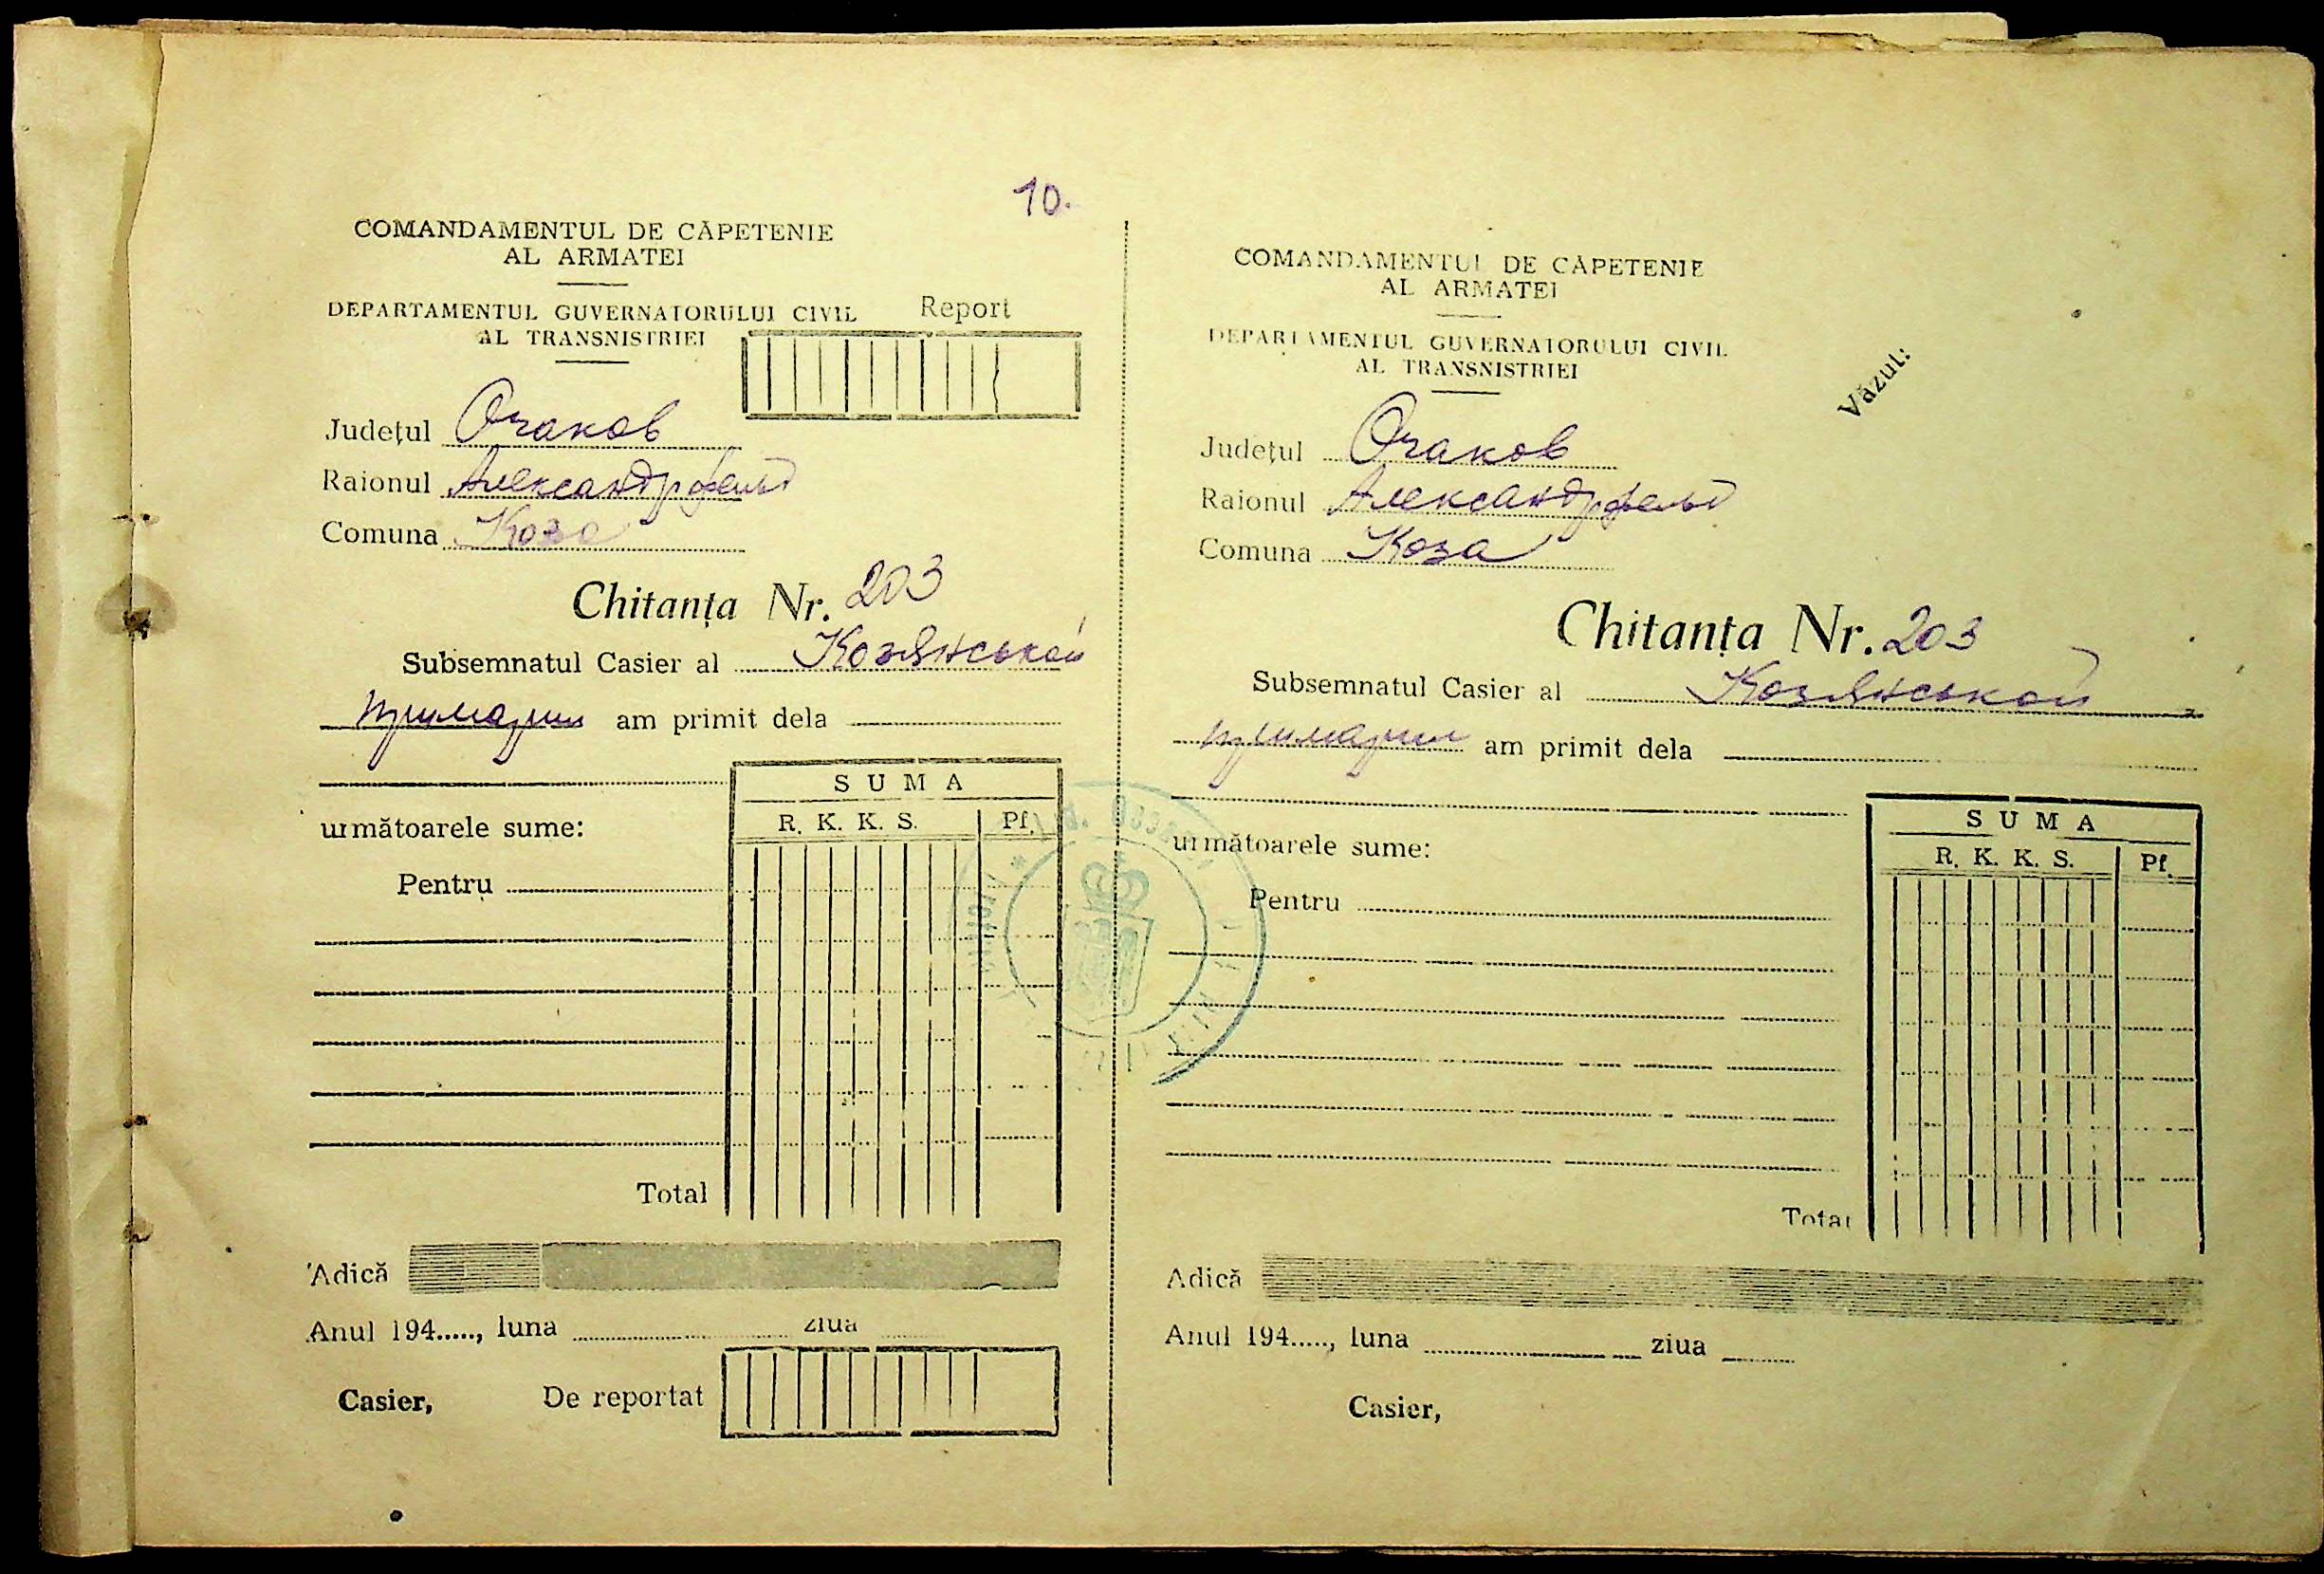 10.
COMANDAMENTUL DE CĂPETENIE
AL ARMATEI
DEPARTAMENTUL GUVERNATORULUI CIVIL
AL TRANSNISTRIEI
Report
Județul Очаков
Raionul Александрфельд
Comuna Коза
Chitanța Nr. 203
Subsemnatul Casier al Козянськой
примарии am primit dela
SUMA
R. K. K. S. Pf.
următoarele sume:
Pentru
Total
Adică
Anul 194....., luna ziua
Casier, De reportat
COMANDAMENTUL DE CĂPETENIE
AL ARMATEI
DEPARTAMENTUL GUVERNATORULUI CIVIL
AL TRANSNISTRIEI
Văzut:
Județul Очаков
Raionul Александрфельд
Comuna Коза
Chitanța Nr. 203
Subsemnatul Casier al Козянськой
примарии am primit dela
SUMA
R. K. K. S. Pf.
următoarele sume:
Pentru
Total
Adică
Anul 194....., luna ziua
Casier,